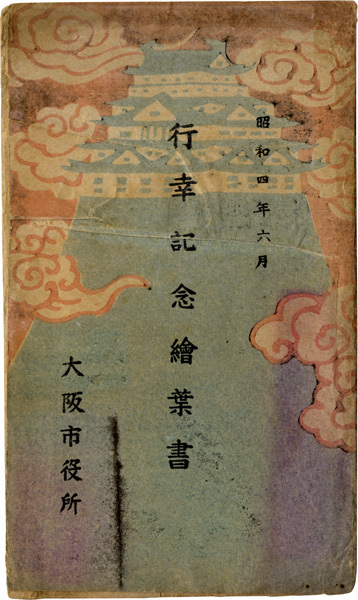 昭和四年六月
行幸記念繪葉書
大阪市役所